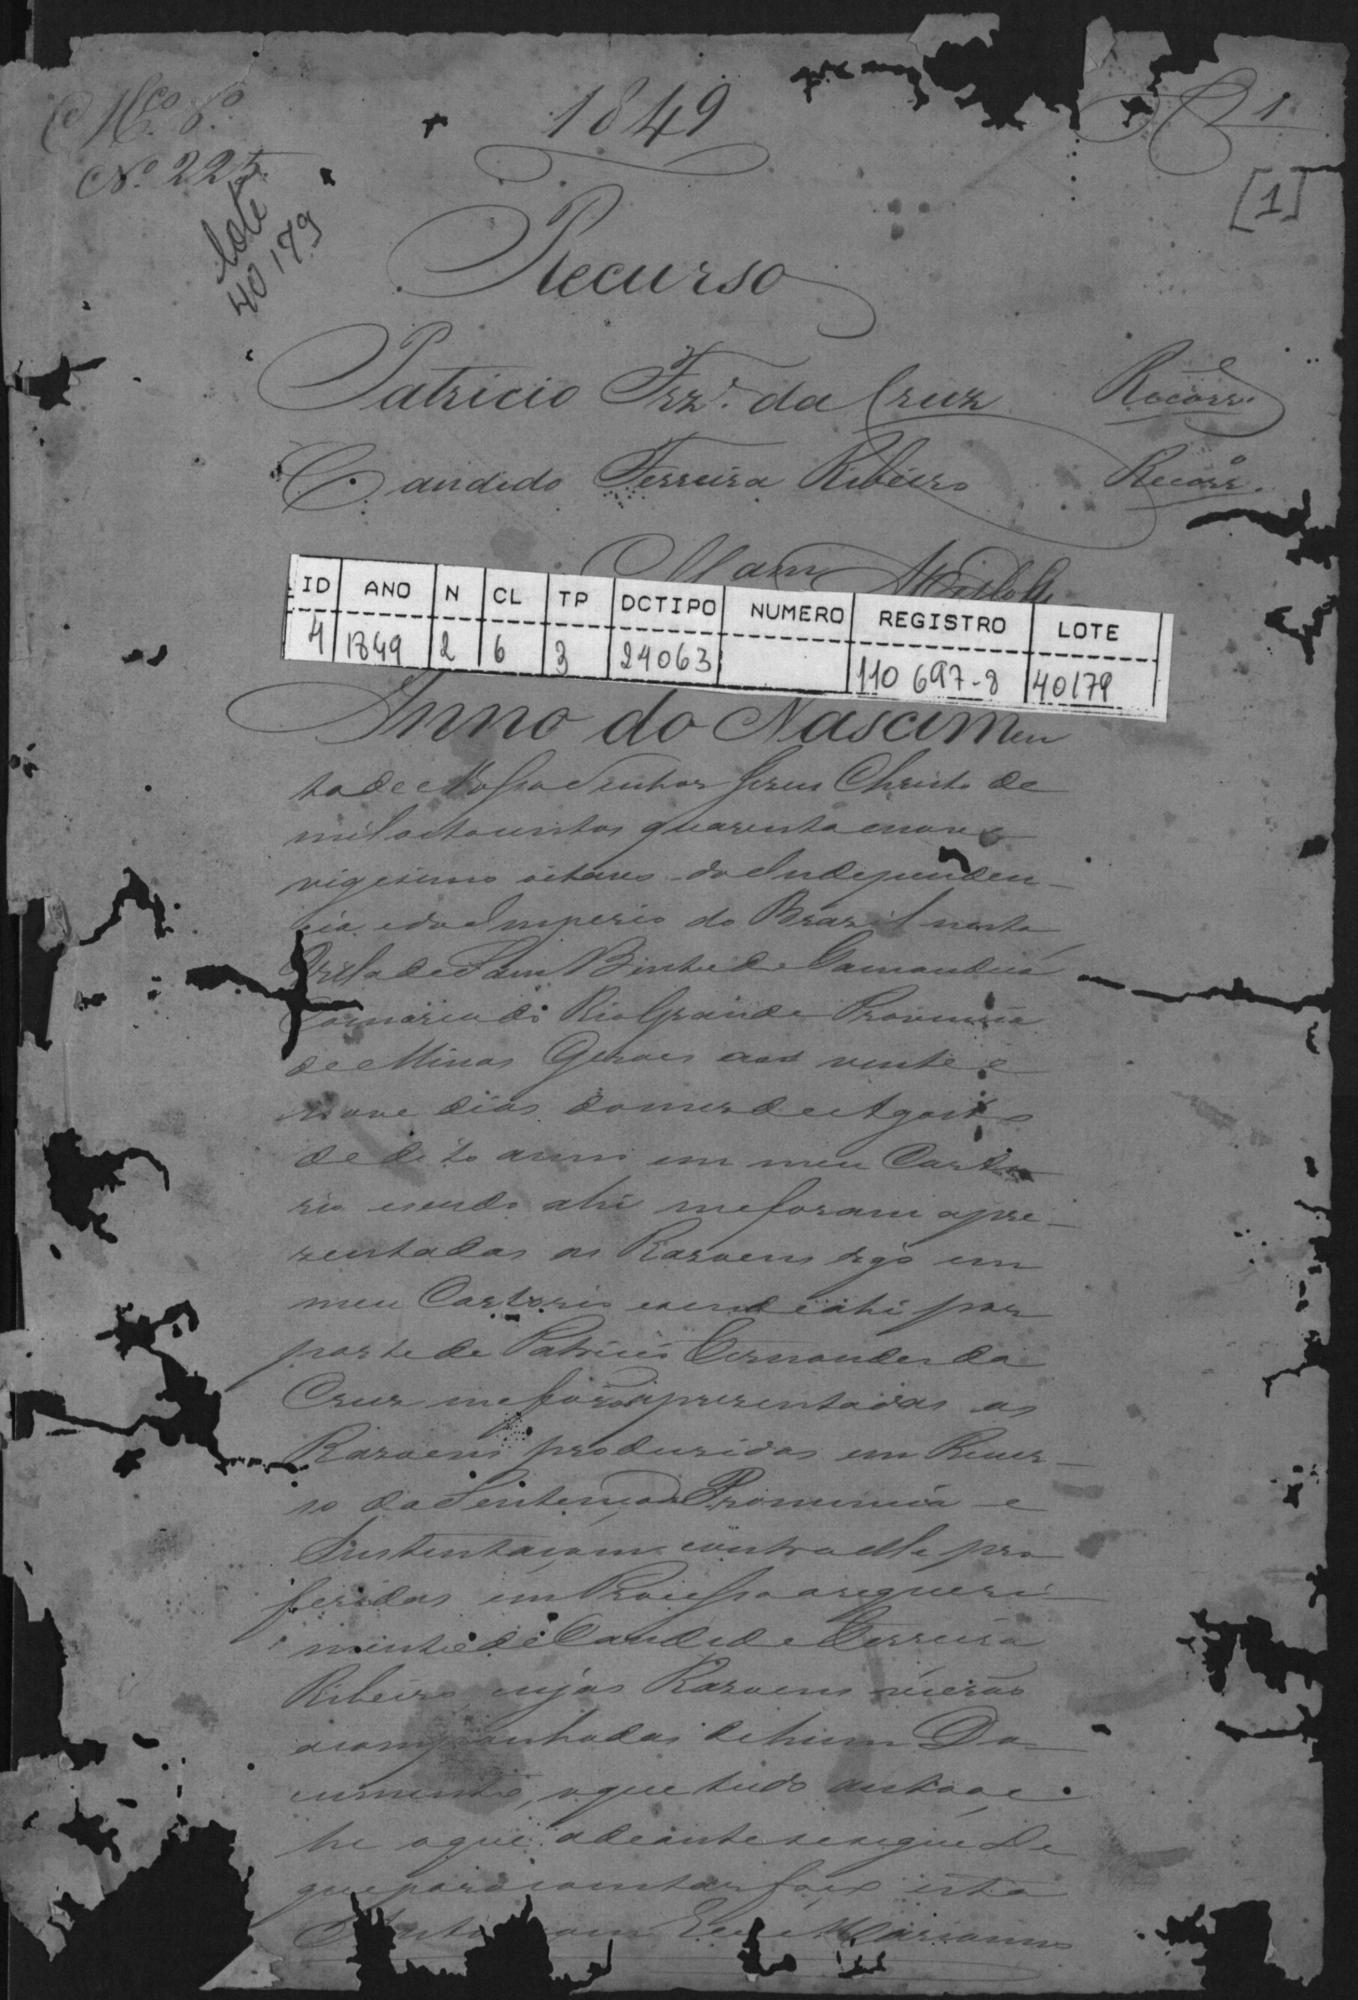 1849
1
Nº 225
lote
40179
[1]
Recurso
Patricio Frz.ᵉ da Cruz Recorr.ᵉ
Candido Ferreira Ribeiro Recorr.º
ID ANO N CL TP DCTIPO NUMERO REGISTRO LOTE
4 1849 2 6 3 24063 110 697-8 40179
Anno do Nascimen
to de Nosso Senhor Jesus Christo de
mil oito centos quarenta e nove
vigesimo oitavo da Independen-
cia e do Imperio do Brazil nesta
Villa de Sam Bento de Tamanduá
Comarca do Rio Grande Provincia
de Minas Geraes aos vinte e
nove dias do mes de Agosto
de dito anno em meu Carto
rio e sendo ahi me foram apre-
zentadas as Razoens digo em
meu Cartorio e sendo ahi por
parte de Patricio Fernandes da
Cruz me forão aprezentadas as
Razoens produzidas em Recur-
so da Sentença de Pronuncia e
Sustentaçam contra elle pro
feridas em Processo a requeri-
mento de Candido Ferreira
Ribeiro cujas Razoens vierão
acompanhadas de hum Do-
cumento, o que tudo autoei e
he o que adeante se segue De
que para constar faço esta
Autoaçam Eu Marianno